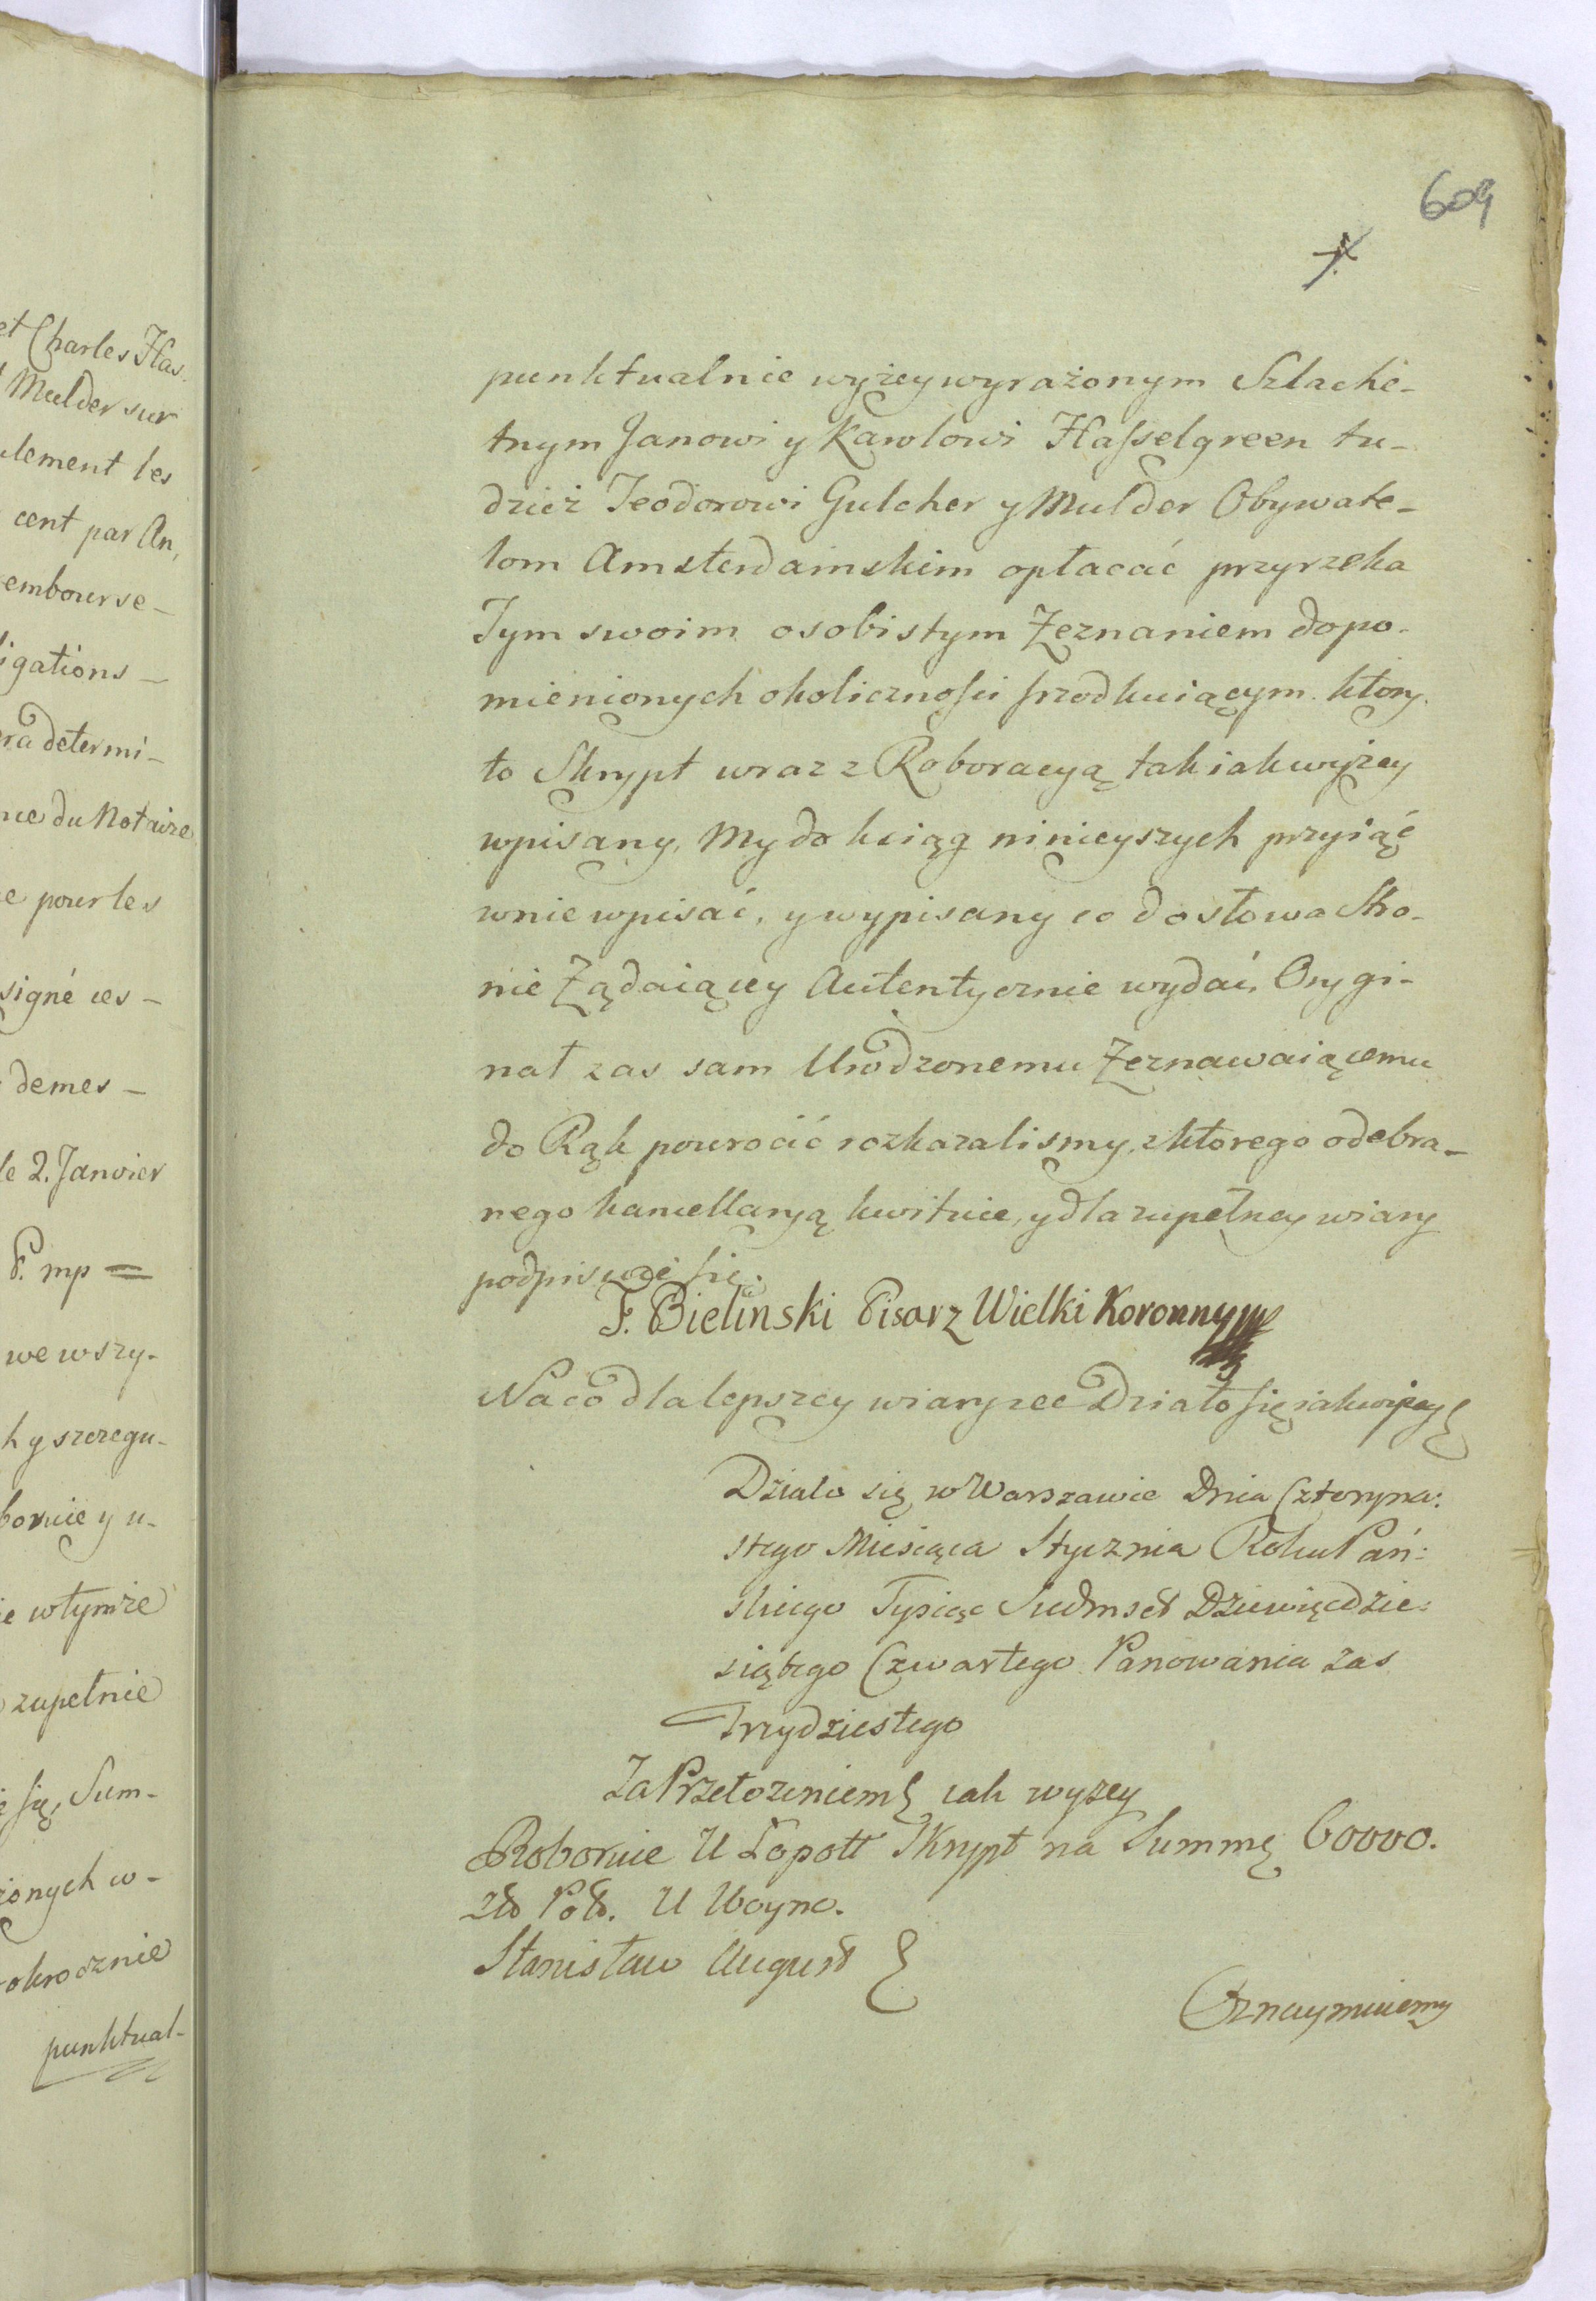 et Charles Has.
Mulder sur
ulement les
cent par An,
embourse-
igations-
ra determi-
nce du Notaire
e pour les
signé ces-
demes-
le 2. Janvier
P. mp =
we wszy-
h y szczegu-
boruie y u-
e w tymże
zupełnie
się Sum-
żonych w-
okrocznie
punktual-
609
punktualnie wyżey wyrażonym Szlache-
tnym Janowi y Karolowi Hasselgreen tu-
dzież Teodorowi Gulcher y Mulder Obywate-
lom Amsterdamskim opłacać przyrzeka
Tym swoim osobistym Zeznaniem dopo-
mienionych okolicznosci srzodkuiącym. ktory.
to Skrypt wraz z Roboracyą tak iak wyżey
wpisany, My do ksiąg ninieyszych przyiąć
w nie wpisać, y wypisany co do słowa Stro-
nie Ządaiącey Autentycznie wydać, Orygi-
nał zas sam Urodzonemu Zeznawaiącemu
do Rąk powrocić rozkazalismy, z ktorego odebra-
nego kancellaryą kwituie, y dla zupełney wiary
podpisuie się.
F. Bieliński Pisarz Wielki Koronny mp
Na co dla lepszey wiary zec Działo się iak wyżey
Działo się w Warszawie Dnia Czteryna:
stego Miesiąca Stycznia Roku Pań:
skiego Tysiąc Siedmset Dziewięcdzie:
siątego Czwartego Panowania zas
Trzydziestego
Za Przełożeniem iak wyzey
Roboruie U Łopott Skrypt na Summę 60000.
zło Pol. U Woyno.
Stanisław August
Oznaymuiemy